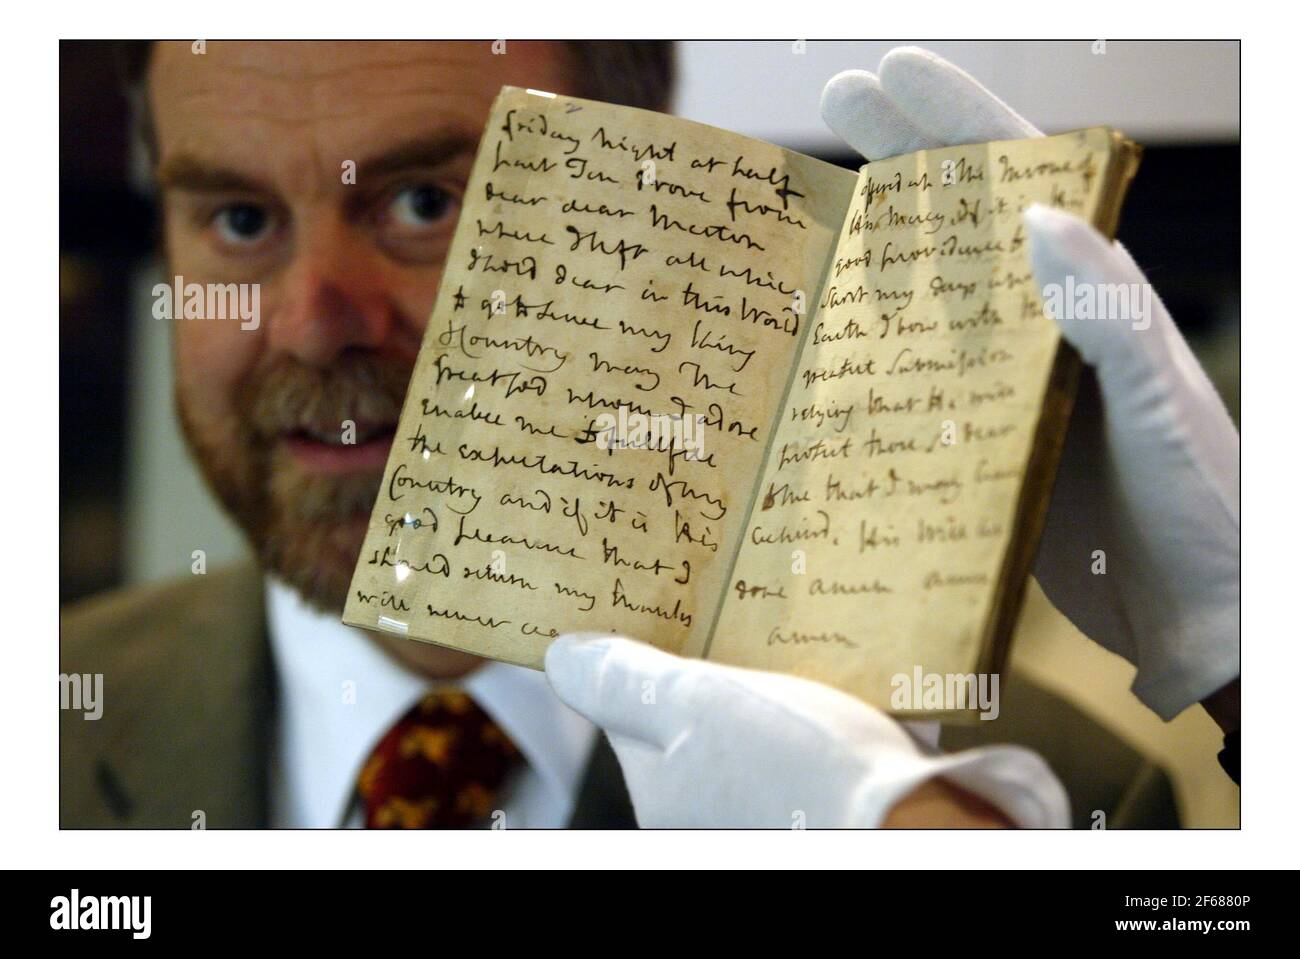 friday Night at half
past Ten Drove from
dear dear Merton
where I left all which
I hold dear in this World
to go to serve my King
& Country may The
Great God whom I adore
enable me to fullfill
the expectations of my
Country and if it is His
good pleasure that I
should return my thanks
will never cea
offerd up to the Throne of
His Mercy, If it is His
good providence to
Earth I bow with the
greatest Submission
relying that He will
protect those so dear
to me that I may leave
behind. His Will be
done amen amen
amen
alamy
Image ID: 2F6880P
www.alamy.com